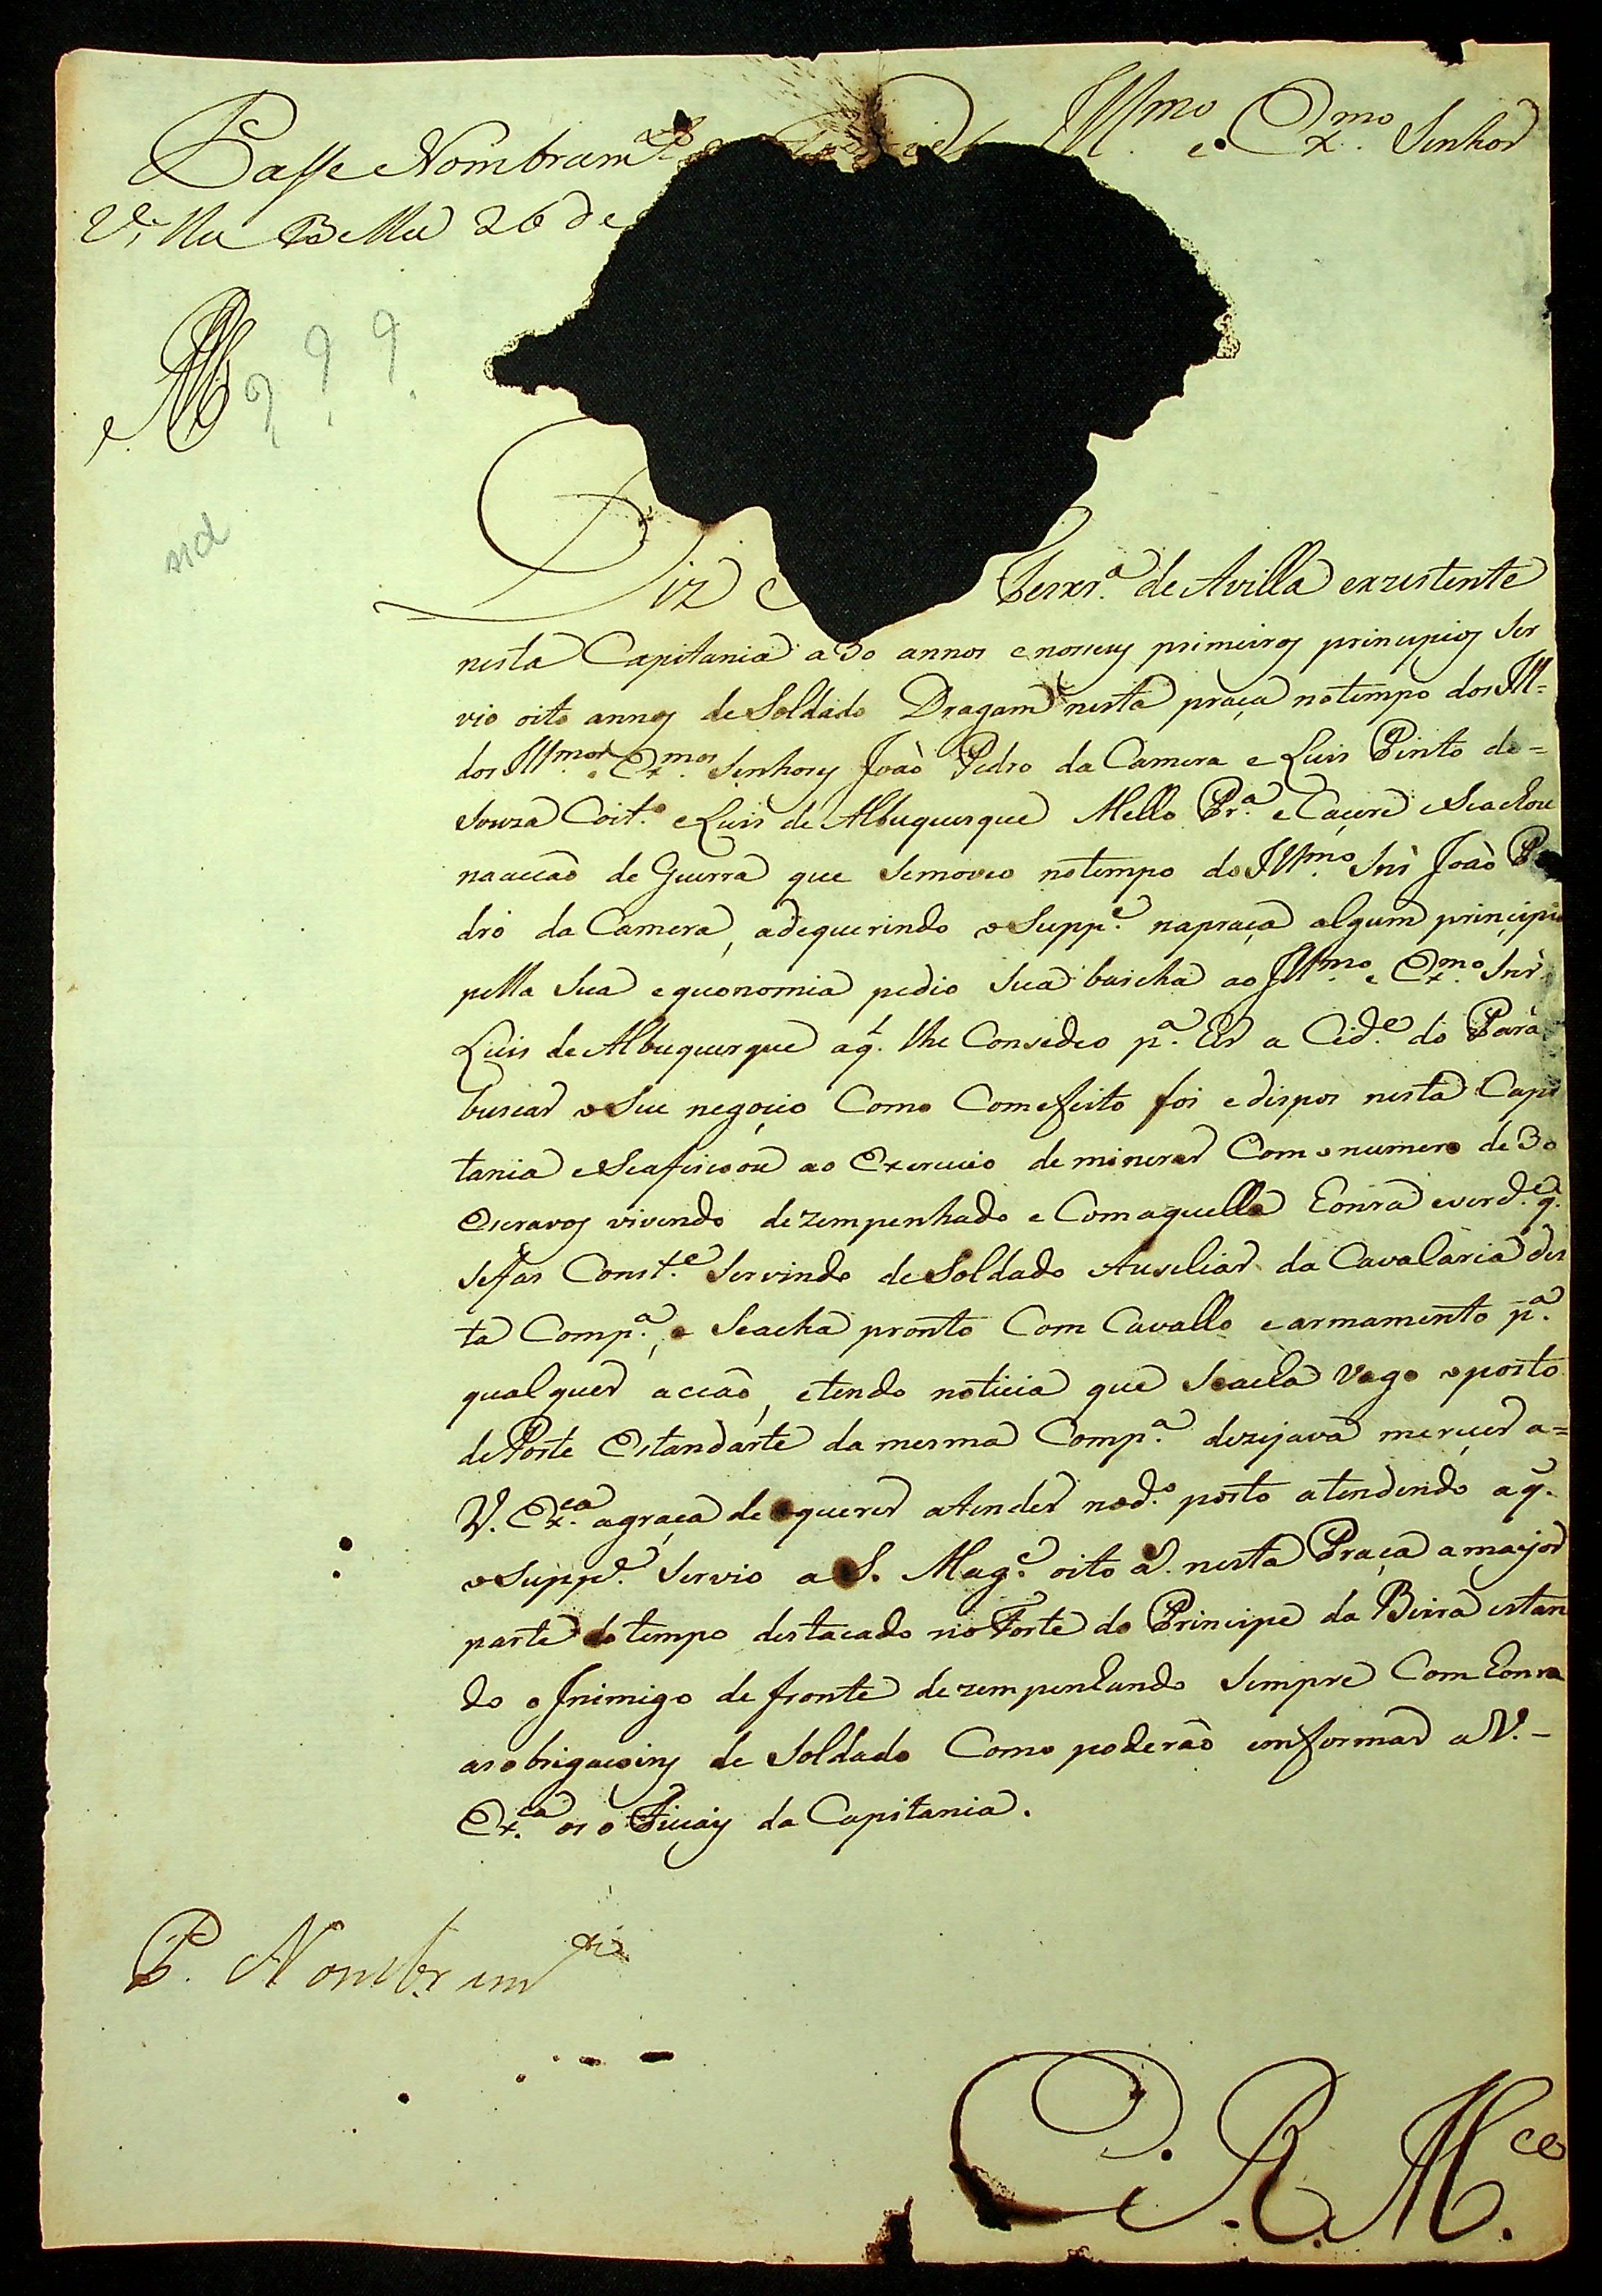 Passe Nombram.to
Illmo. e Exmo. Senhor
Villa Bella 26 de
Diz
Ferr.a de Avilla exzestente
nesta Capitania a 30 annos e nosseus primeiros principios ser
vio oito annos de Soldado Dragam nesta praça notempo dos Ill=
dos Illmos. e Exmos. Senhores João Pedro da Camera e Luis Pinto de=
Souza Coit.o e Luis de Albuquerque Mello Pr.a e Caçere e Seachou
naaccaõ de Guerra que semoveo notempo do Illmo. Snr João Pe
dro da Camera, adequerindo o Supp.e napraça algum principio
pella Sua equonomia pedio Sua baicha ao Illmo. e Exmo. Snr
Luis de Albuquerque aq.l lhe Consedeo p.a Hir a Cid.e do Pará
buscar o Seu negoçio Como Comefeito fos e dispos nesta Capi
tania e Seafiscoou ao Exercicio de minerar Com o numero de 30
Escravos vivendo dezempenhado e Comaquella Honra e verd.e q.
sefas Const.e Servindo de Soldado Auseliar da Cavalaria des
ta Comp.a, e Seacha pronto Com Cavallo e armamento p.a
qualquer accaõ, etendo noticia que Seacha Vago o posto
de Porte Estandarte da mesma Comp.a dezejava mereçer a=
V. Ex.ca agraça de o querer atender nod.o posto atendendo aq.
o Supp.e Servio a S. Mag.e oito a. nesta Praça a mayor
parte do tempo destacado no Forte do Principe da Beira estan
do o Inimigo de fronte dezempenhando Sempre Com honra
as obrigaçoins de Soldado Como poderão imformar a V.-
Ex.ca os o Ficiais da Capitania.
P. Nombram.to
E. R. M.ce